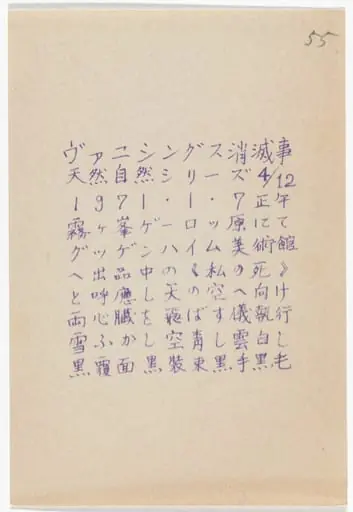 ヴァニシングス消滅事
天然自然シリーズ4/12
1971・1・7正午
霧ヶ峯ゲーロッ原にて
グッゲンハイム美術館
へ出品中の《私の死》
と呼應し天の空へ向け
両心臓をばす儀執行
雪ふかし空青し雲白し
黒覆面黒装束黒手黒毛
55